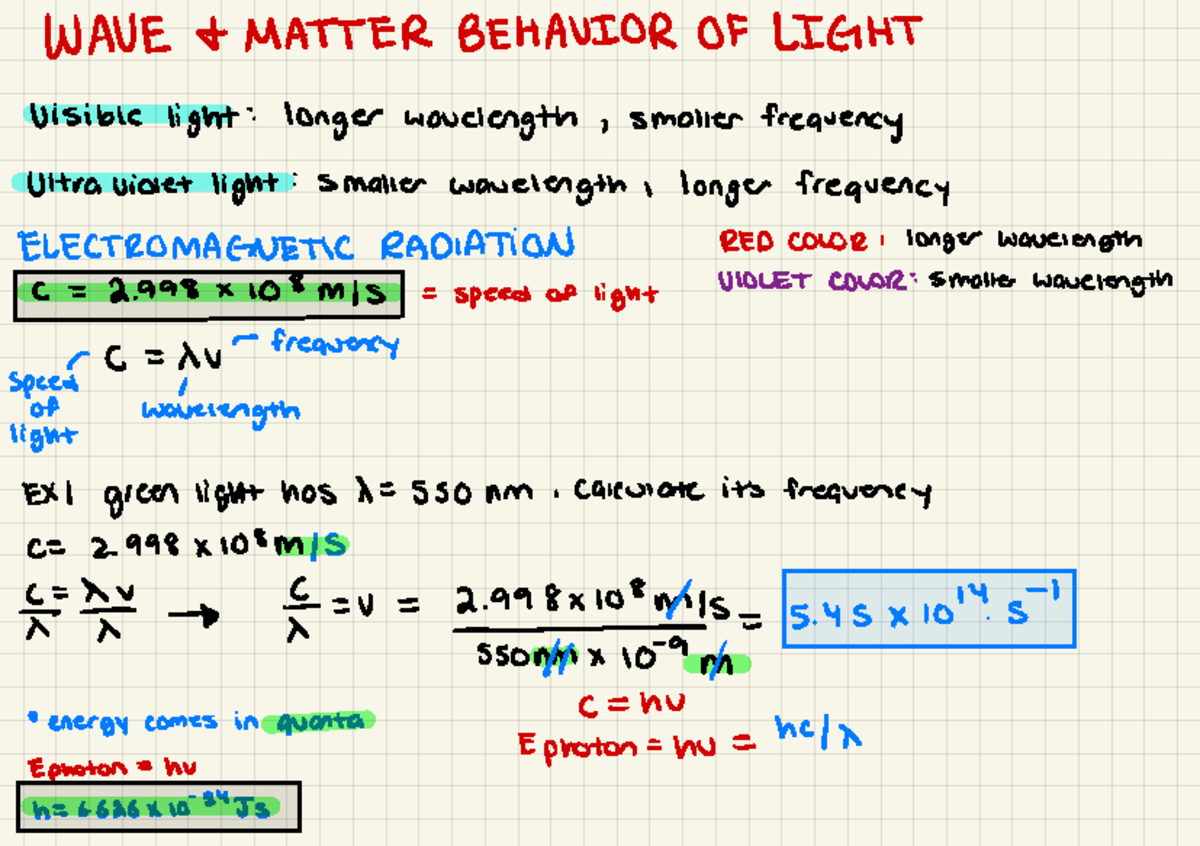 WAVE + MATTER BEHAVIOR OF LIGHT
Visible light: longer wavelength, smaller frequency
Ultra violet light: smaller wavelength, longer frequency
ELECTROMAGNETIC RADIATION
RED COLOR: longer wavelength
VIOLET COLOR: smaller wavelength
C = 2.998 x 10⁸ m/s = speed of light
C = λν
frequency
speed of light
wavelength
EX| green light has λ = 550 nm. Calculate its frequency
C = 2.998 x 10⁸ m/s
C/λ = λν/λ → C/λ = ν = 2.998 x 10⁸ m/s / 550 nm x 10⁻⁹ m = 5.45 x 10¹⁴ · s⁻¹
C = hν
• energy comes in quanta
E photon = hν = hc/λ
E photon = hν
h = 6.626 x 10⁻³⁴ Js